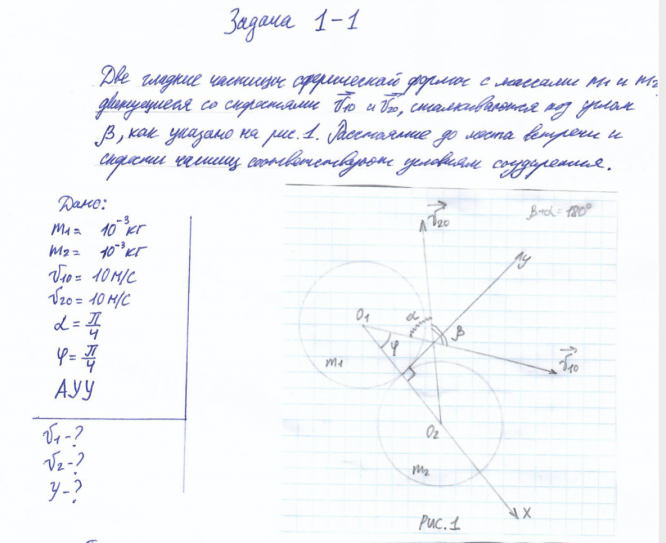 Задача 1-1
Две гладкие частицы сферической формы с массами m1 и m2
движущиеся со скоростями v⃗10 и v⃗20, сталкиваются под углом
β, как указано на рис. 1. Расстояние до места встречи и
скорости частиц соответствуют условиям соударения.
Дано:
m1 = 10⁻³ кг
m2 = 10⁻³ кг
v10 = 10 м/с
v20 = 10 м/с
α = π/4
φ = π/4
АУУ
v1 - ?
v2 - ?
У - ?
v⃗20
β+α = 180°
y
O1
α
β
φ
m1
v⃗10
O2
m2
x
Рис. 1